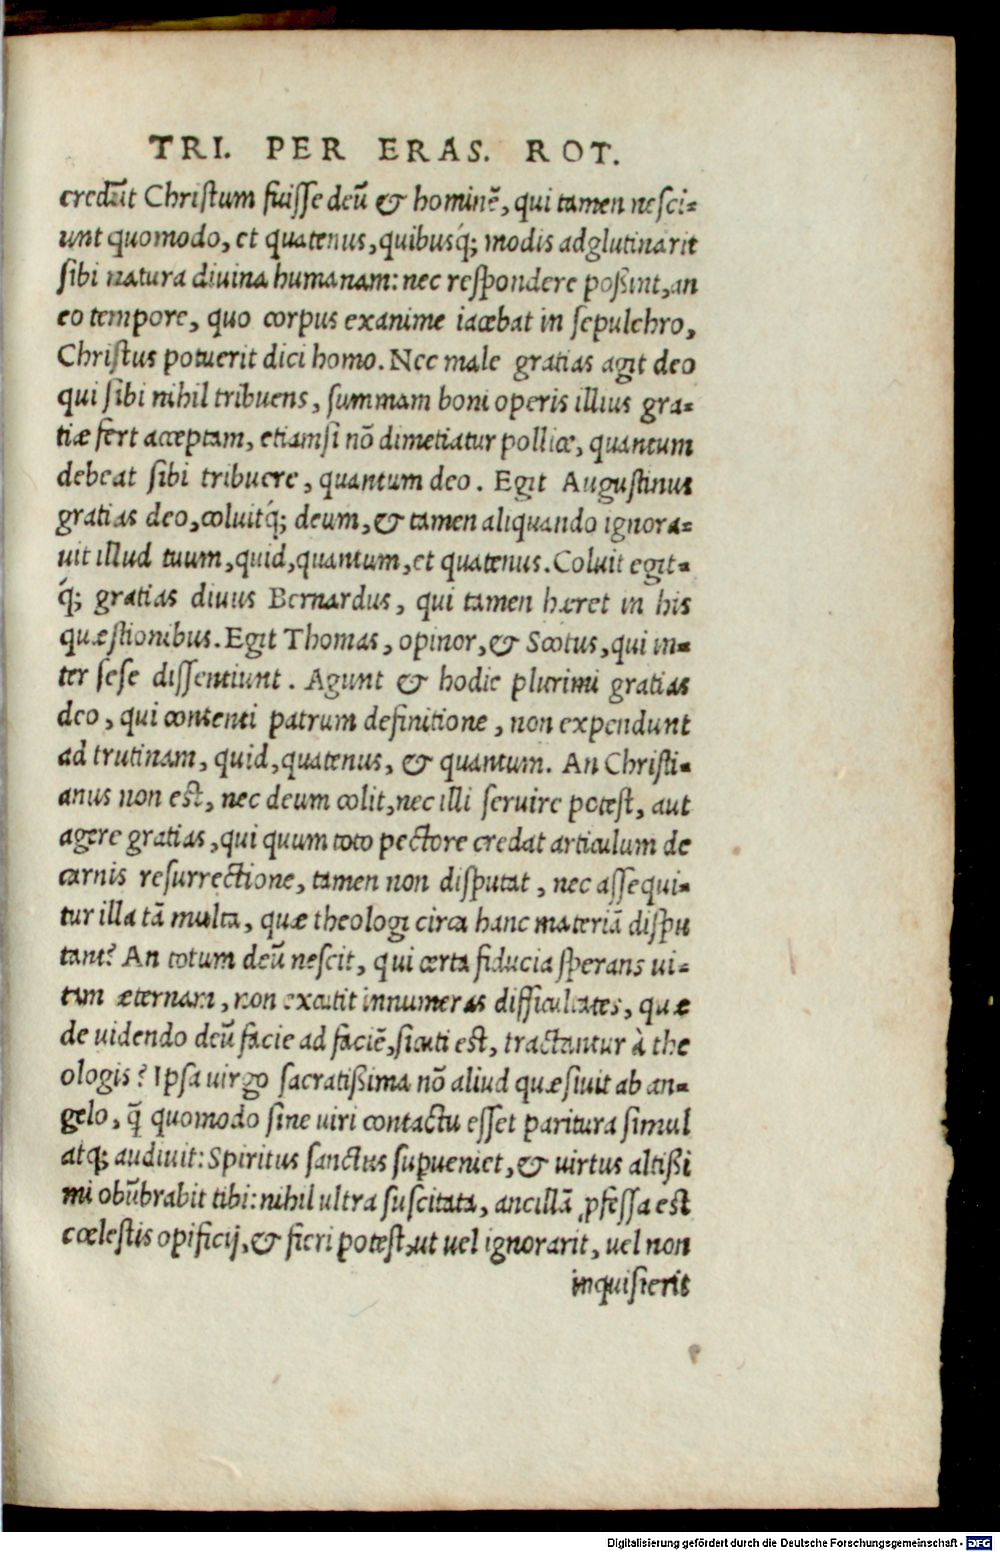 TRI. PER ERAS. ROT.
credūt Christum fuisse deū & hominē, qui tamen nesci-
unt quomodo, et quatenus, quibusq́; modis adglutinarit
sibi natura divina humanam: nec respondere poßint, an
eo tempore, quo corpus exanime iacebat in sepulchro,
Christus potuerit dici homo. Nec male gratias agit deo
qui sibi nihil tribuens, summam boni operis illius gra-
tiæ fert acceptam, etiamsi nō dimetiatur pollice, quantum
debeat sibi tribuere, quantum deo. Egit Augustinus
gratias deo, coluitq́; deum, & tamen aliquando ignora-
uit illud tuum, quid, quantum, et quatenus. Coluit egit-
q́; gratias diuus Bernardus, qui tamen hæret in his
quæstionibus. Egit Thomas, opinor, & Scotus, qui in-
ter sese dissentiunt. Agunt & hodie plurimi gratias
deo, qui contenti patrum definitione, non expendunt
ad trutinam, quid, quatenus, & quantum. An Christi-
anus non est, nec deum colit, nec illi seruire potest, aut
agere gratias, qui quum toto pectore credat articulum de
carnis resurrectione, tamen non disputat, nec assequi-
tur illa tā multa, quæ theologi circa hanc materiā dispu
tant? An totum deū nescit, qui certa fiducia sperans ui-
tam æternam, non excutit innumeras difficultates, quæ
de uidendo deū facie ad faciē, sicuti est, tractantur à the
ologis? Ipsa uirgo sacratißima nō aliud quæsiuit ab an-
gelo, q̄ quomodo sine uiri contactu esset paritura simul
atq; audiuit: Spiritus sanctus supueniet, & uirtus altißi
mi obūbrabit tibi: nihil ultra suscitata, ancillā ꝓfessa est
cœlestis opificij, & fieri potest, ut uel ignorarit, uel non
inquisierit
Digitalisierung gefördert durch die Deutsche Forschungsgemeinschaft - DFG